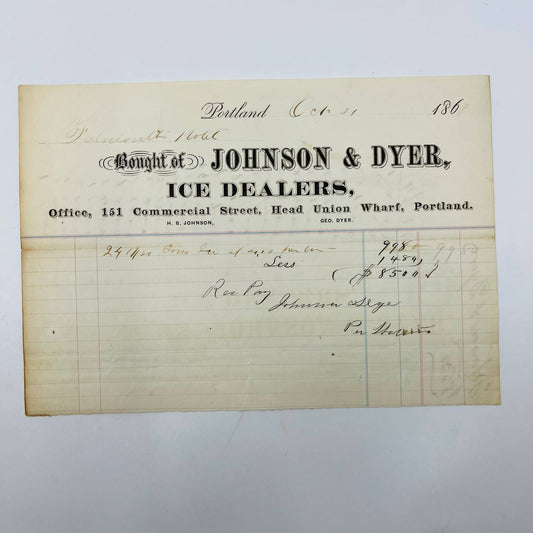 Portland Oct 11 186
Falmouth Hotel
Bought of JOHNSON & DYER,
ICE DEALERS,
Office, 151 Commercial Street, Head Union Wharf, Portland.
H. B. JOHNSON, GEO. DYER.
Ice 4.00 per ton 9980 9980
Less 1489
$8501
Rec Pay
Johnson Dyer
Per